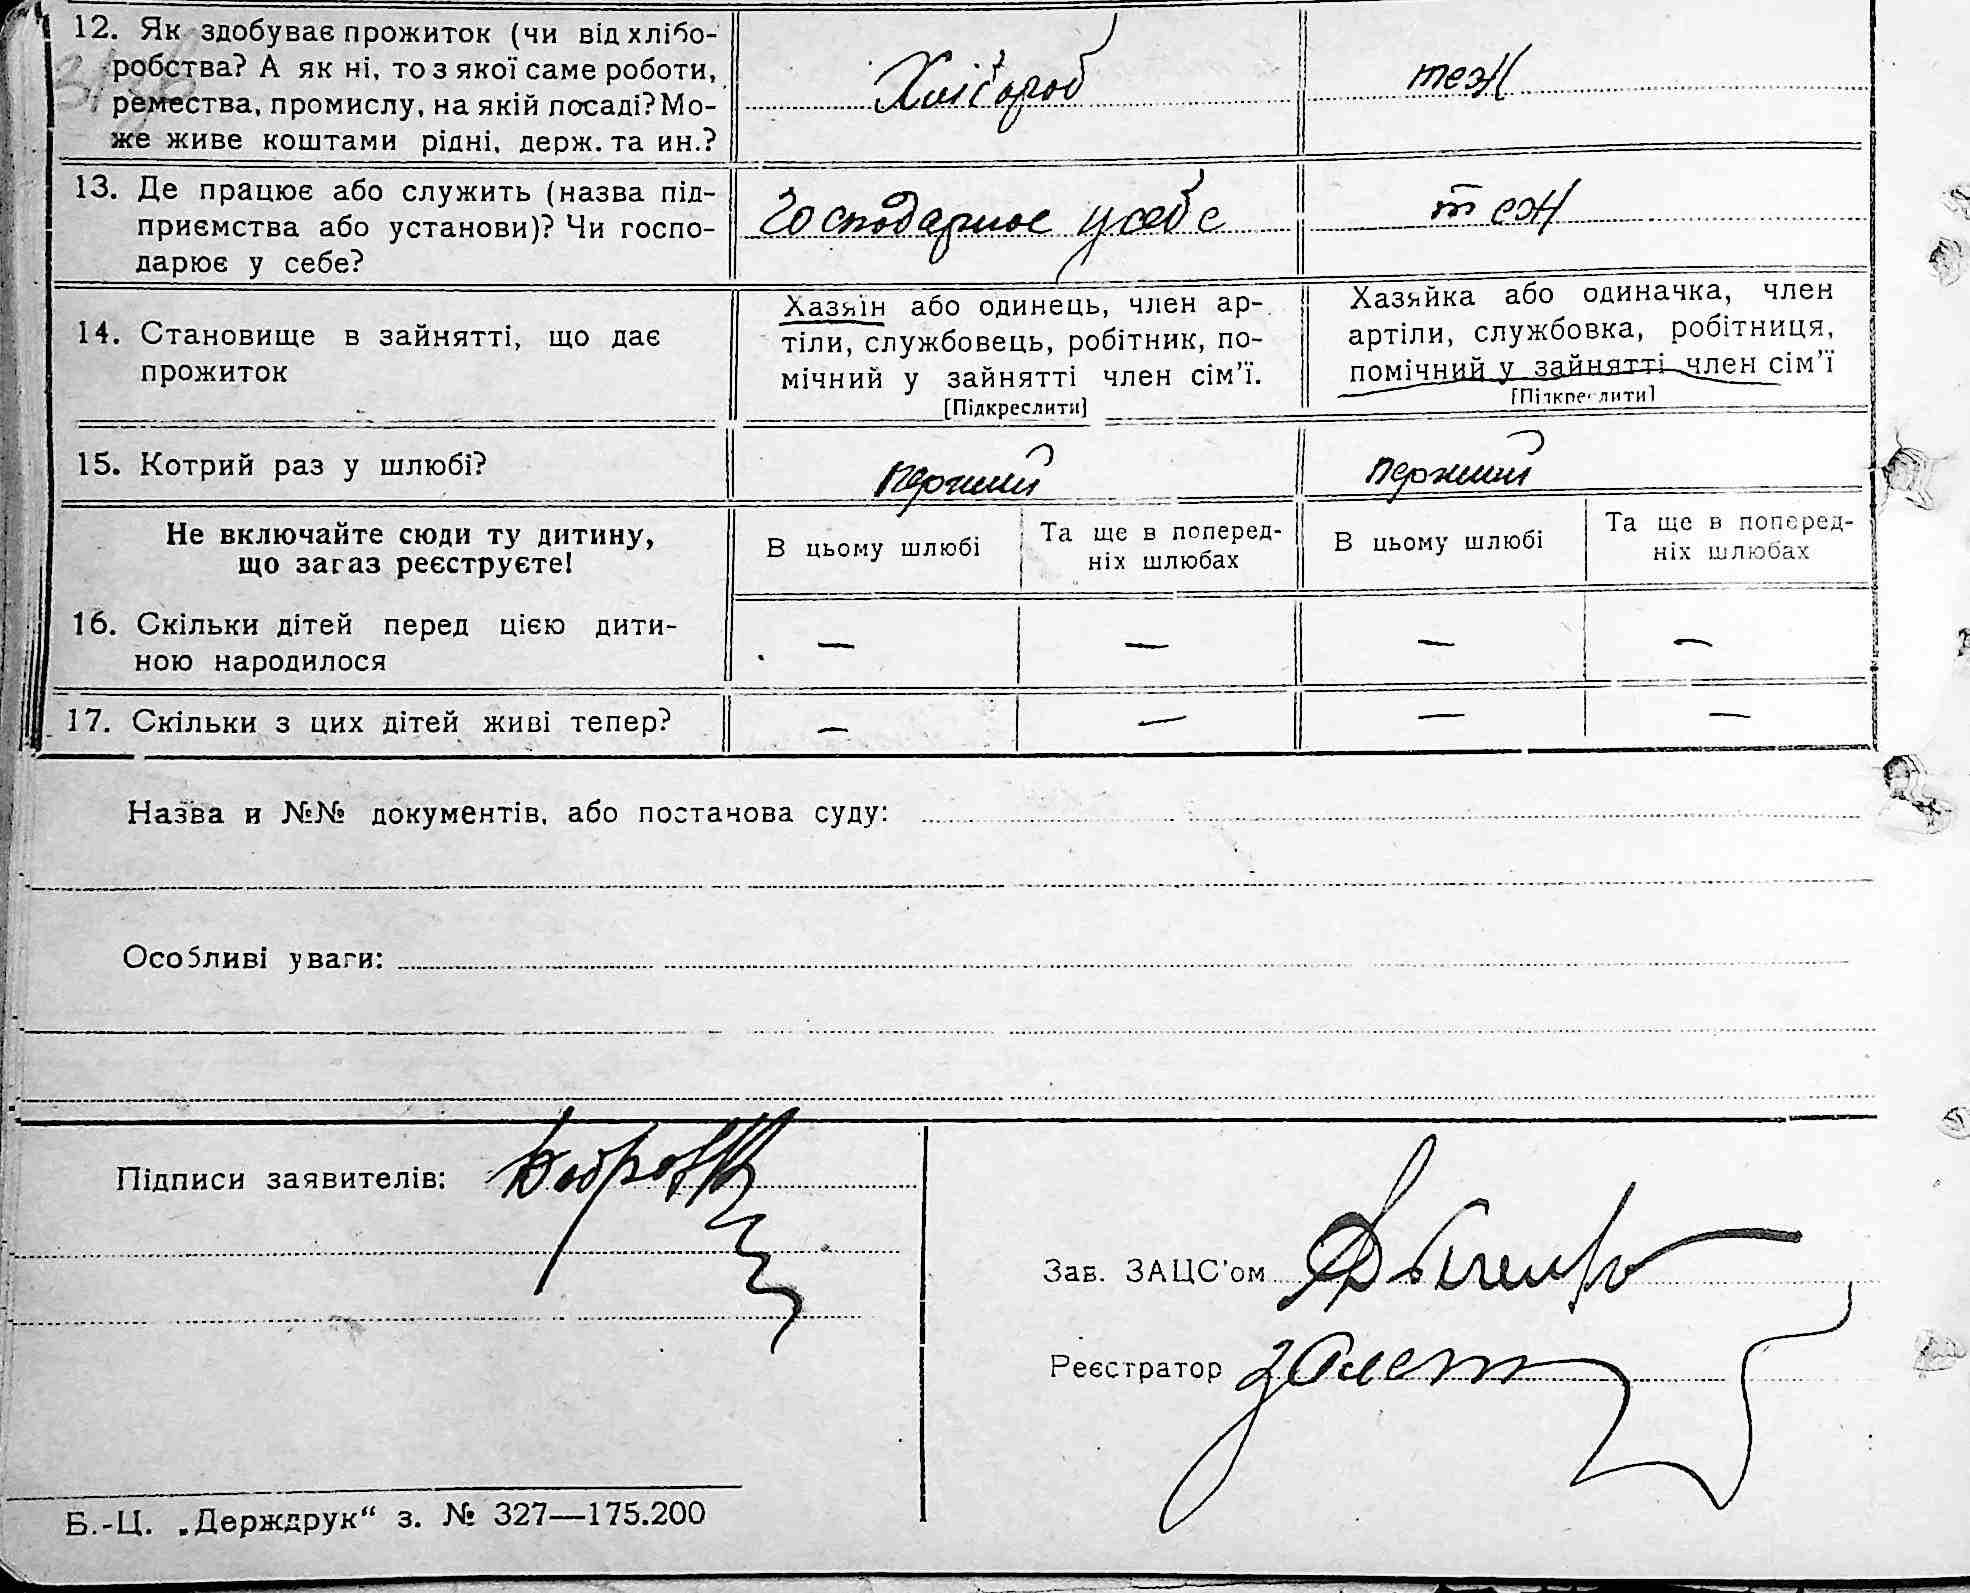 12. Як здобуває прожиток (чи від хлібо-
робства? А як ні, то з якої саме роботи,
ремества, промислу, на якій посаді? Мо-
же живе коштами рідні, держ. та ин.?
Хлібороб
теж
13. Де працює або служить (назва під-
приємства або установи)? Чи госпо-
дарює у себе?
Господарює у себе
теж
14. Становище в зайнятті, що дає
прожиток
Хазяїн або одинець, член ар-
тіли, службовець, робітник, по-
мічний у зайнятті член сім'ї.
[Підкреслити]
Хазяйка або одиначка, член
артіли, службовка, робітниця,
помічний у зайнятті член сім'ї
[Підкреслити]
15. Котрий раз у шлюбі?
перший
перший
Не включайте сюди ту дитину,
що загаз реєструєте!
В цьому шлюбі
Та ще в поперед-
ніх шлюбах
В цьому шлюбі
Та ще в поперед-
ніх шлюбах
16. Скільки дітей перед цією дити-
ною народилося
— — — —
17. Скільки з цих дітей живі тепер?
— — — —
Назва и №№ документів, або постанова суду:
Особливі уваги:
Підписи заявителів:
Зав. ЗАЦС'ом
Реєстратор
Б.-Ц. „Держдрук“ з. № 327—175.200